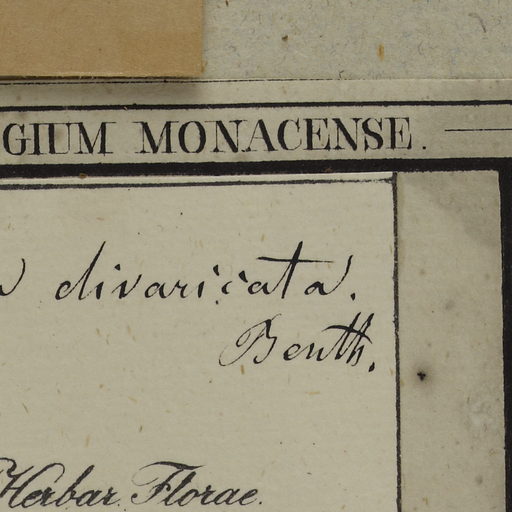 GIUM MONACENSE.
a divaricata.
Benth.
Herbar. Florae.